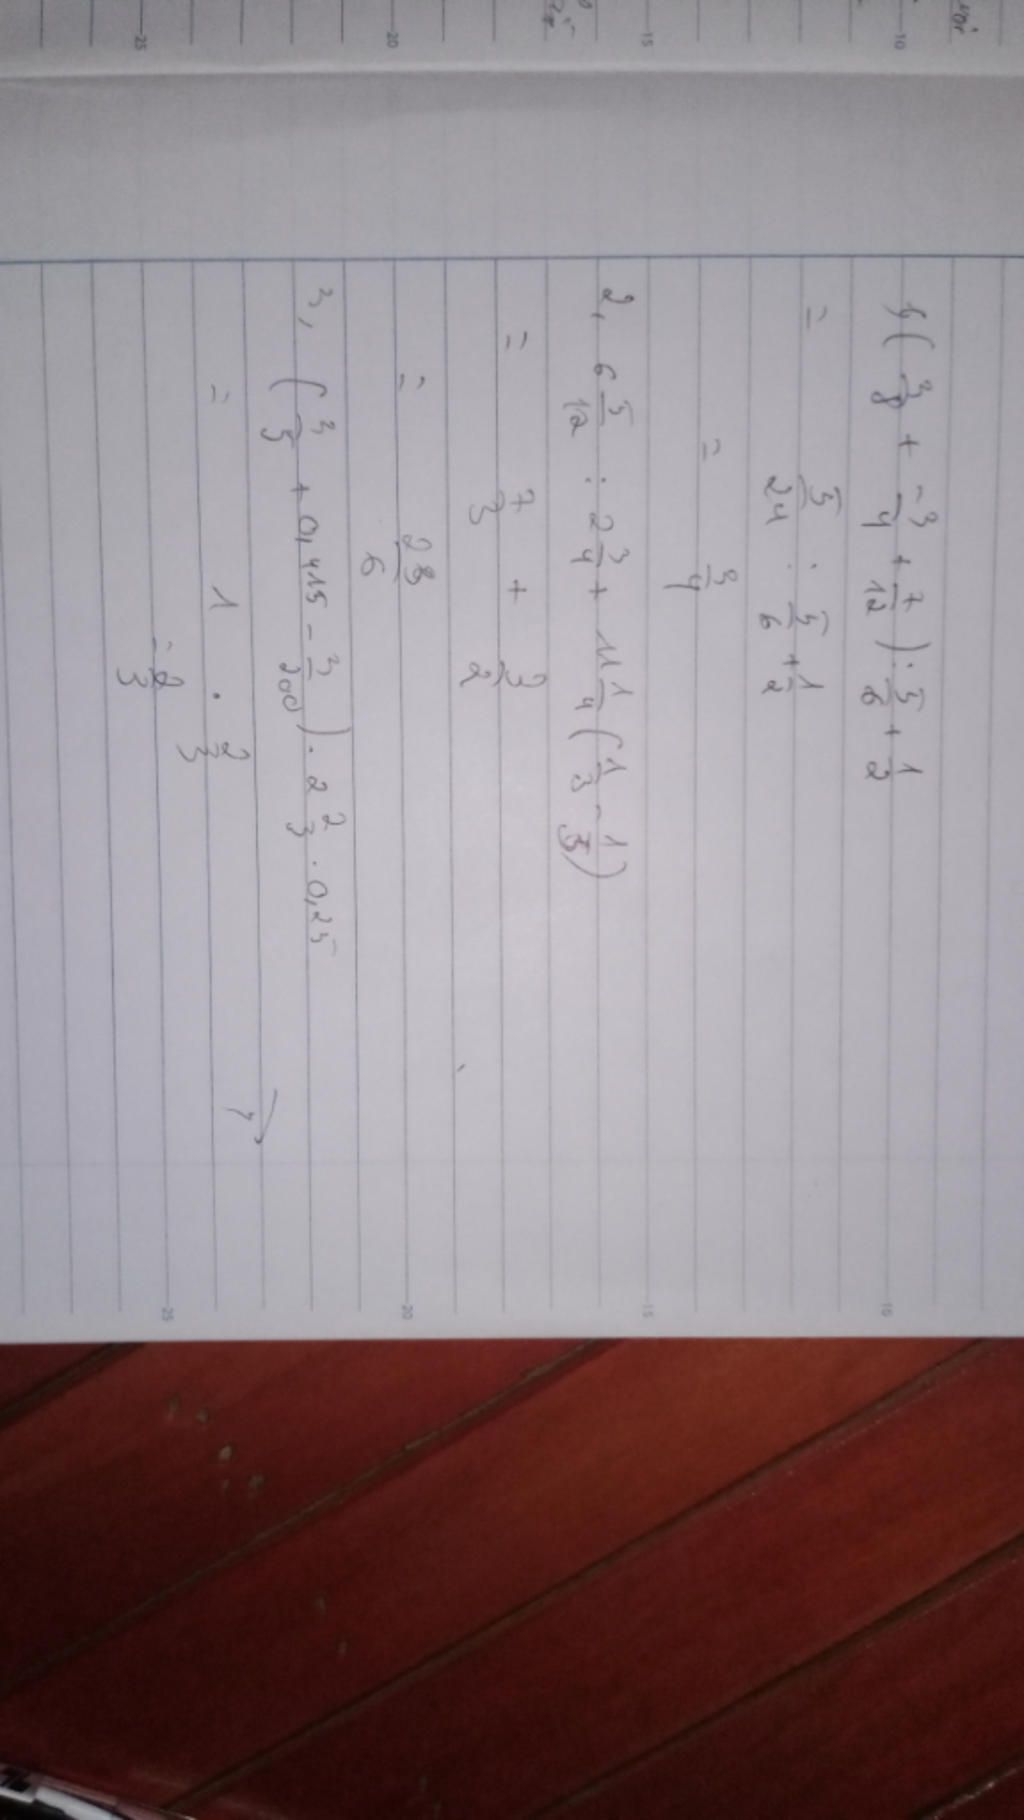 1, (3/8 + -3/4 + 7/12) : 5/6 + 1/2
= 5/24 : 5/6 + 1/2
= 3/4
2, 6 5/12 : 2 3/4 + 11 1/4 (1/3 - 1/5)
= 7/3 + 3/2
= 23/6
3, (3/5 + 0,415 - 3/200) . 2 2/3 . 0,25
= 1 . 2/3
= 2/3
10
15
20
25
10
15
20
25